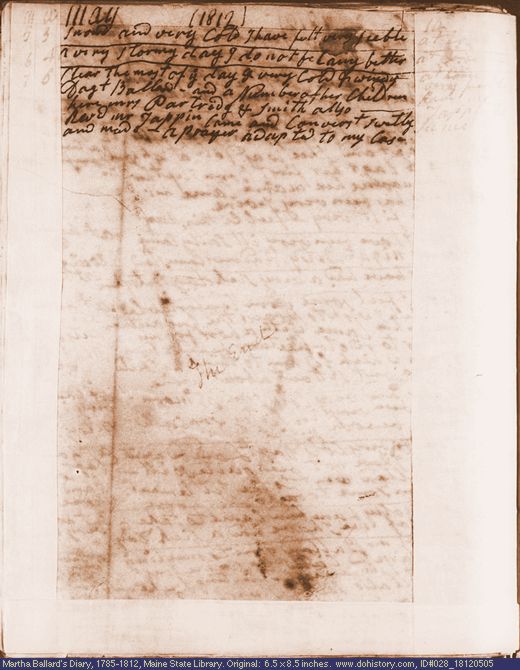 May (1812)
3 3 Snowd and very Cold I have felt very feeble
4 a very Stormy day I do not feel any better
6 Clear the most of ye day & very Cold & windy
Dagt Ballard and a Number of her Children
here mrs Partredg & Smith allso
Revd mr Tappin Came and Converst Swetly
and made a Prayer adapted to my Case
The End
Martha Ballard's Diary, 1785-1812, Maine State Library. Original: 6.5 x 8.5 inches. www.dohistory.com, ID#028_18120505